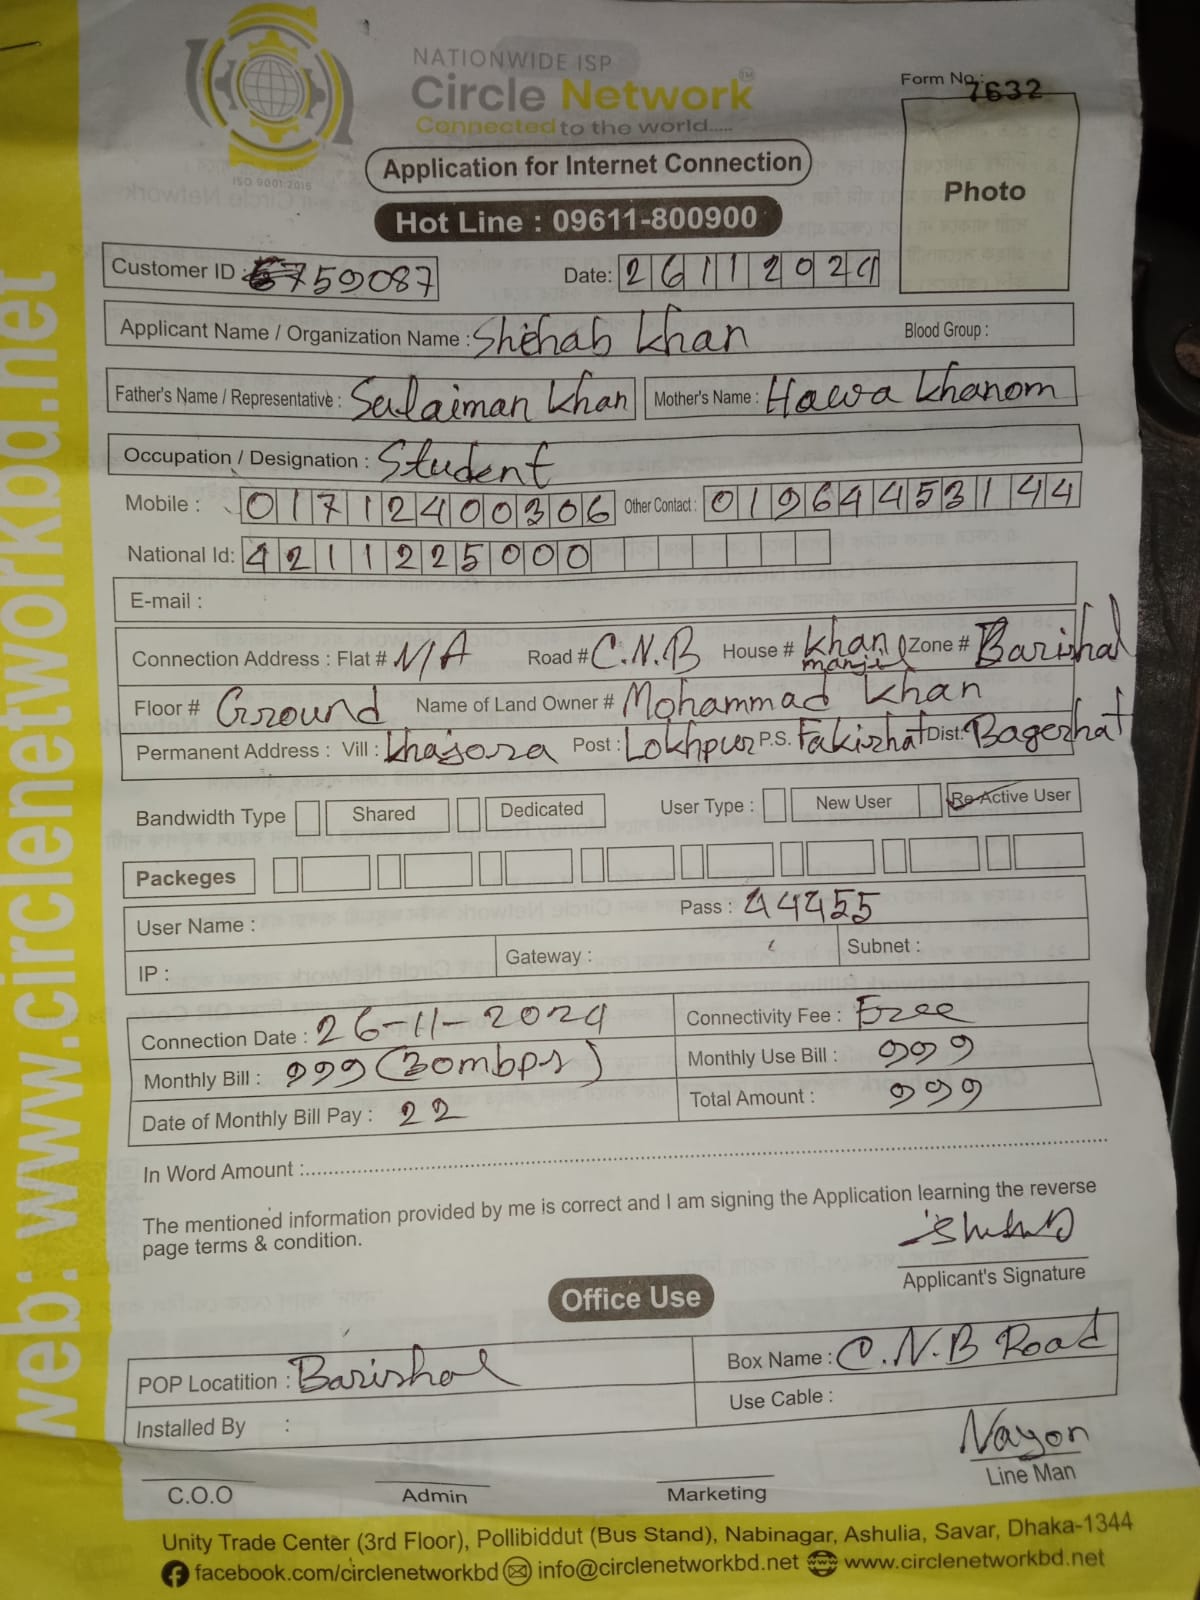 NATIONWIDE ISP
Circle Network™
Connected to the world.....
ISO 9001:2015
Form No.: 7632
Application for Internet Connection
Photo
Hot Line : 09611-800900
Customer ID : 759087 Date: 26112024
Applicant Name / Organization Name : Shihab Khan Blood Group :
Father's Name / Representative : Sulaiman Khan Mother's Name : Hawa Khanom
Occupation / Designation : Student
Mobile : 01712400306 Other Contact : 019644531 44
National Id: 4211225000
E-mail :
Connection Address : Flat # N/A Road # C.N.B House # Khan manjil Zone # Barishal
Floor # Ground Name of Land Owner # Mohammad Khan
Permanent Address : Vill : Khajora Post : Lokhpur P.S. Fakirhat Dist: Bagerhat
Bandwidth Type Shared Dedicated User Type : New User Re-Active User
Packeges
User Name : Pass : 44455
IP : Gateway : Subnet :
Connection Date : 26-11-2024 Connectivity Fee : Free
Monthly Bill : 999 (30mbps) Monthly Use Bill : 999
Date of Monthly Bill Pay : 22 Total Amount : 999
In Word Amount :
The mentioned information provided by me is correct and I am signing the Application learning the reverse
page terms & condition.
Applicant's Signature
Office Use
POP Locatition : Barishal Box Name : C.N.B Road
Installed By : Use Cable :
Nayon
C.O.O Admin Marketing Line Man
Unity Trade Center (3rd Floor), Pollibiddut (Bus Stand), Nabinagar, Ashulia, Savar, Dhaka-1344
facebook.com/circlenetworkbd info@circlenetworkbd.net www.circlenetworkbd.net
web: www.circlenetworkbd.net